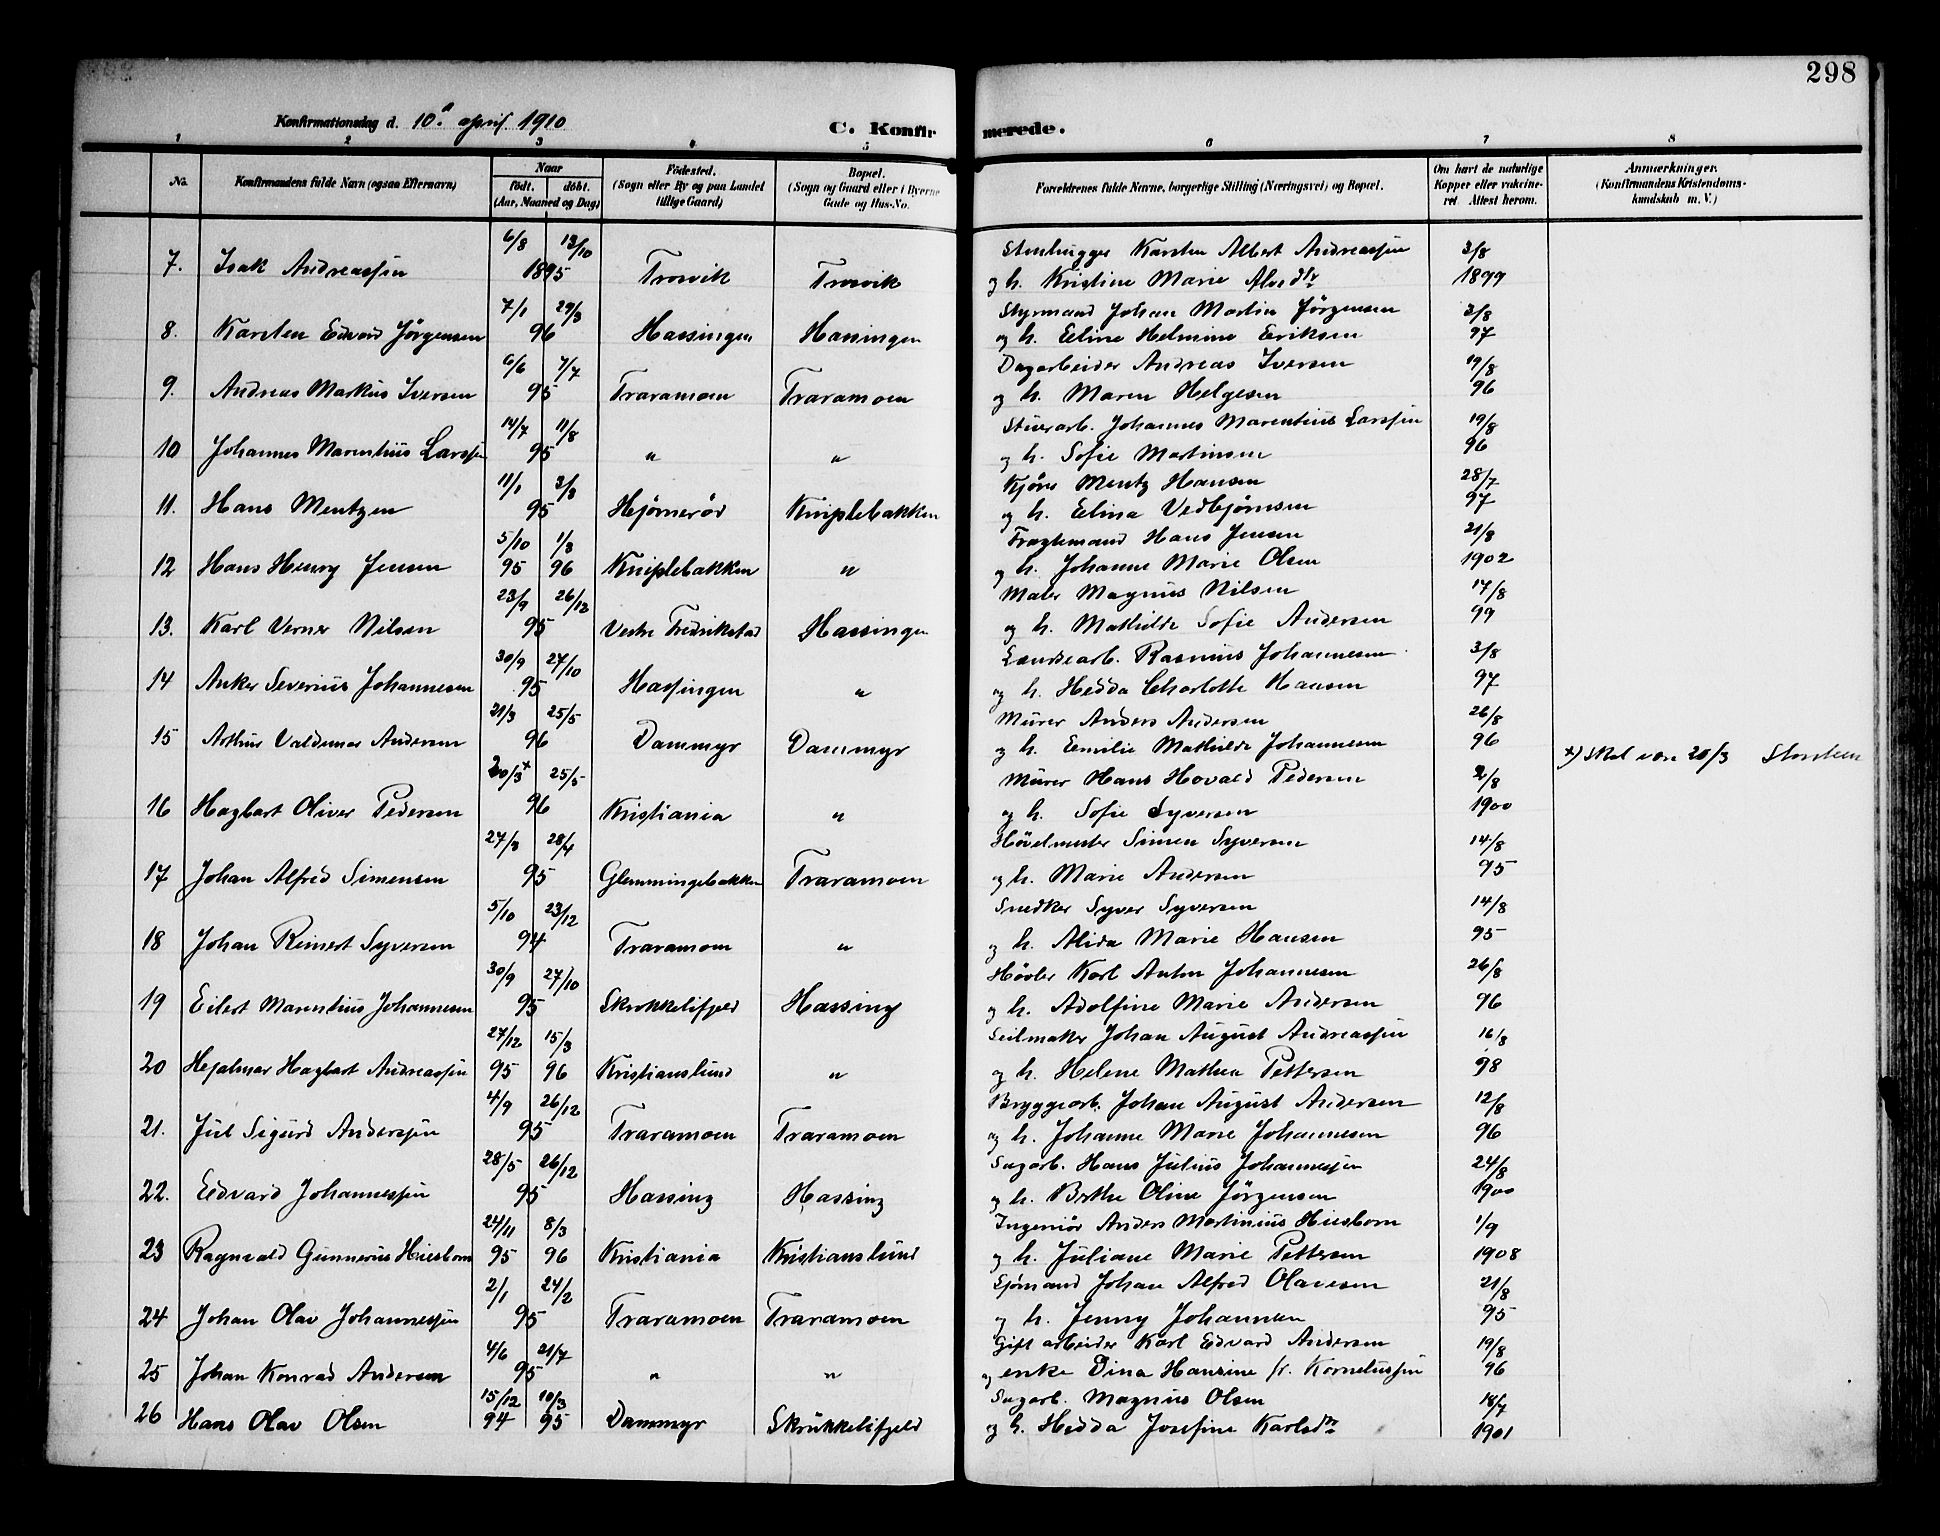 298
Konfirmationsdag d. 10de april 1910
C. Konfirmerede.
1 2 3 4 5 6 7 8
No. Konfirmandens fulde Navn (ogsaa Efternavn) Naar født. døbt. (Aar, Maaned og Dag) Födested. (Sogn eller By og paa Landet tillige Gaard) Bopæl. (Sogn og Gaard eller i Byerne Gade og Hus-No. Forældrenes fulde Navne, borgerlige Stilling (Næringsvei) og Bopæl. Om havt de naturlige Kopper eller vakcineret Attest herom. Anmærkninger. (Konfirmandens Kristendomskundskab m. V.)
6/8 13/10 Stenhugger Karsten Albert Andreassen 3/8
7. Isak Andreassen 1895 Trosvik Trosvik og h. Kristine Marie 1899
7/1 29/3 Styrmand Johan Martin Jörgensen 3/8
8. Karsten Edvard Jörgensen 96 Hassingen Hassingen og h. Eline Helmine Eriksen 97
6/6 7/7 Dagarbeider Andreas Iversen 19/8
9. Andreas Markus Iversen 95 Traramoen Traramoen og h. Maren Helgesen 96
14/7 11/8 Stuerarb. Johannes Marentius Larssen 19/8
10 Johannes Marentius Larssen 95 " " og h. Sofie Martinsen 96
11/1 3/3 Kjöre Mentz Hansen 28/7
11. Hans Mentzen 95 Hjörneröd Kniplebakken og h. Elina Vedbjörnsen 97
5/10 1/3 Fragtemand Hans Jensen 21/8
12 Hans Henry Jensen 95 96 Kniplebakken " og h. Johanne Marie Olsen 1902
23/9 26/12 Maler Magnus Nilsen 17/8
13. Karl Verner Nilsen 95 Vestre Fredrikstad Hassingen og h. Mathilde Sofie Andersen 99
30/9 27/10 Landsearb. Rasmus Johannesen 3/8
14 Anker Severius Johannesen 95 Hassingen " og h. Hedda Charlotte Hansen 97
21/3 25/5 Murer Anders Andersen 26/8
15 Arthur Valdemar Andersen 96 Dammyr Dammyr og h. Emilie Mathilde Johannesen 96
20/3 x 25/5 Murer Hans Hovald Pedersen 2/8 x) Skal være 20/3
16 Hagbart Oliver Pedersen 96 Kristiania " og h. Sofie Syversen 1900
27/3 28/4 Hövelmester Simen Syversen 14/8
17 Johan Alfred Simensen 95 Glemmingebakken Traramoen og h. Marie Andersen 95
5/10 23/12 Snedker Syver Syversen 14/8
18 Johan Reinert Syversen 94 Traramoen " og h. Alida Marie Hansen 95
30/9 27/10 Hövler Karl Anton Johannesen 26/8
19 Eilert Marentius Johannesen 95 Skrokkelifjeld Hassing og h. Adolfine Marie Andersen 96
27/12 15/3 Seilmaker Johan August Andreassen 16/8
20 Hejalmar Hagbart Andreassen 95 96 Kristianslund " og h. Helene Mathea Pettersen 98
4/9 26/12 Bryggearb. Johan August Andersen 12/8
21. Jul Sigurd Anderssen 95 Traramoen Traramoen og h. Johanne Marie Johannesen 96
28/5 26/12 Sagarb. Hans Julius Johannessen 24/8
22. Edvard Johannessen 95 Hassing Hassing og h. Berthe Oline Jörgensen 1900
24/11 8/3 Ingeniör Anders Martinius Huseborn 1/9
23 Ragnvald Gunnerius Huseborn 95 96 Kristiania Kristianslund og h. Juliane Marie Pettersen 1908
2/1 24/2 Sjömand Johan Alfred Olavesen 21/8
24 Johan Olav Johannessen 95 Traramoen Traramoen og h. Jenny Johannsen 95
4/6 21/7 Gift arbeider Karl Edvard Andersen 19/8
25 Johan Konrad Andersen 95 " " og enke Dina Hansine f. Korneliussen 96
15/12 10/3 Sagarb. Magnus Olsen 18/7
26 Hans Olav Olsen 94 95 Dammyr Skrukkelifjeld og h. Hedda Josefine Karlsdtr 1901